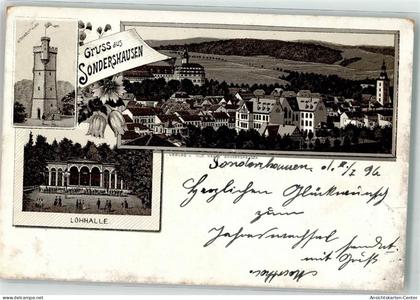 Gruss aus
Sondershausen
LOHHALLE
Sondershausen, d.
Herzlichen Glückwunsch
zum
Jahreswechsel sendet
mit Gruß
© Ansichtskarten-Center
Ansichtskarten-Center.com